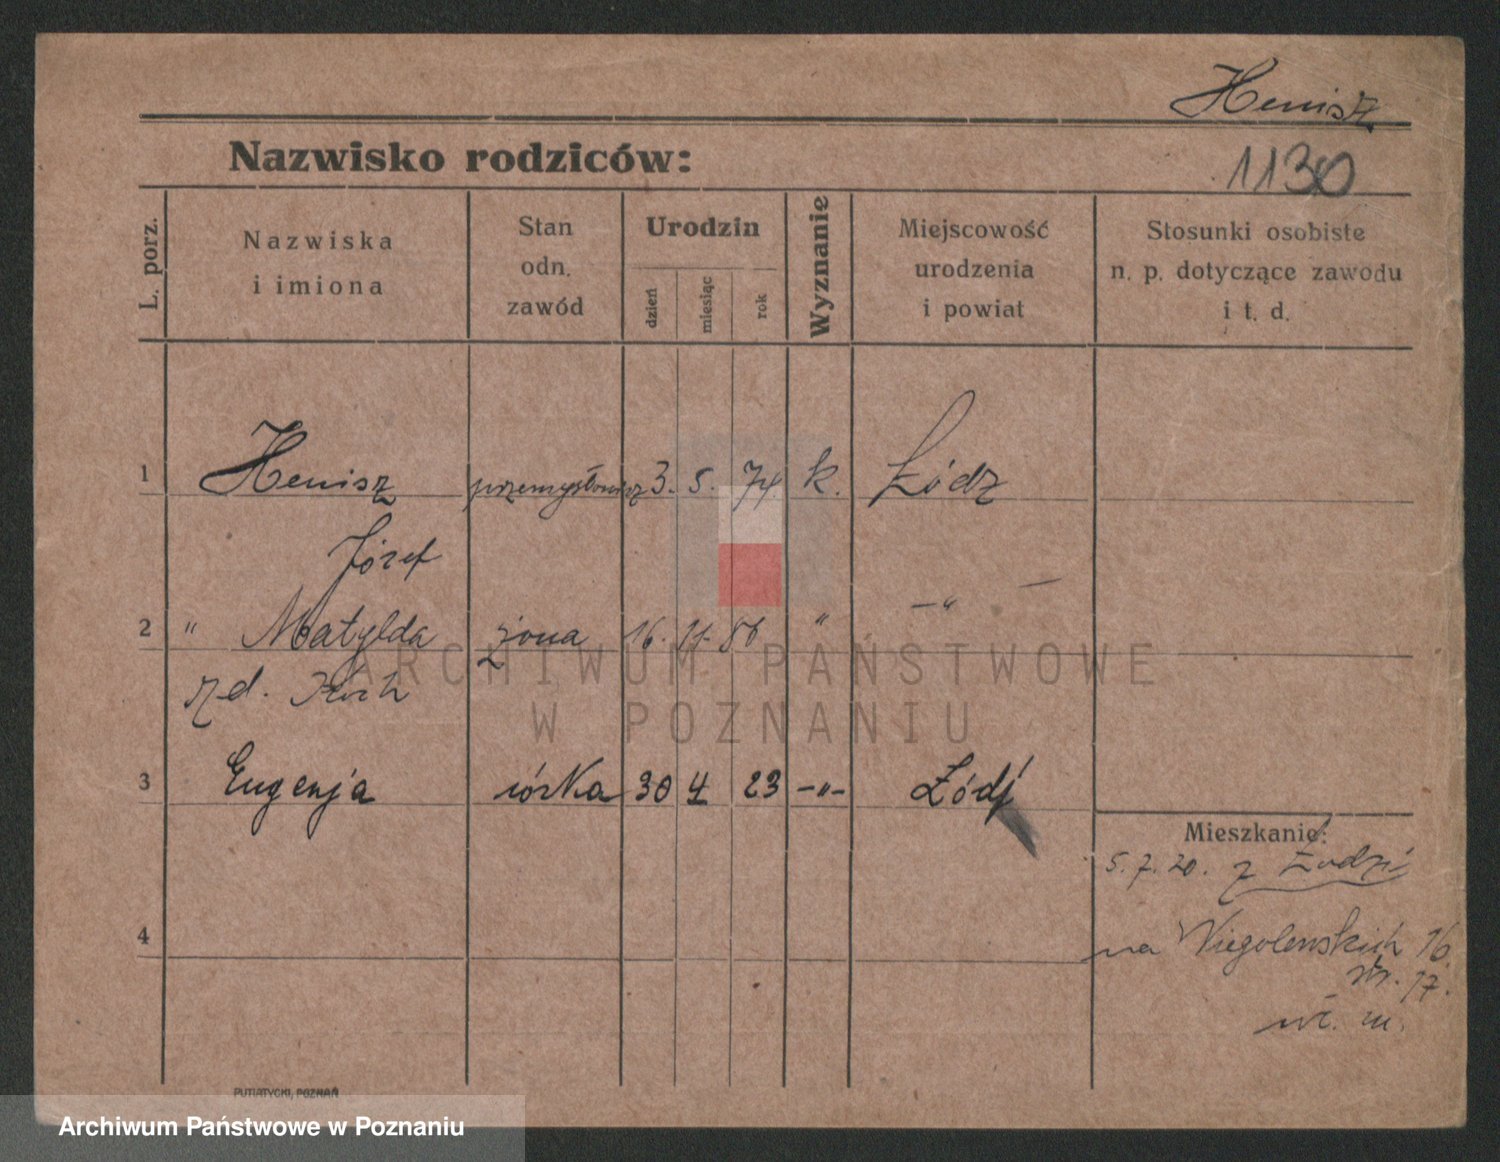 Henisz
Nazwisko rodziców:
1130
L. porz.
Nazwiska
i imiona
Stan
odn.
zawód
Urodzin
dzień
miesiąc
rok
Wyznanie
Miejscowość
urodzenia
i powiat
Stosunki osobiste
n. p. dotyczące zawodu
i t. d.
1 Henisz przemysłowiec 3. 5. 74. k. Łódz
Józef
2 " Matylda żona 16. 11. 86 " —"—
zd. Koch
3 Eugenja córka 30 4 23 -"- Łódź
Mieszkanie:
5.7.20. z Łodzi
4
na 16.
str. 17.
wł. m.
PUTIATYCKI, POZNAŃ
ARCHIWUM PAŃSTWOWE
W POZNANIU
Archiwum Państwowe w Poznaniu